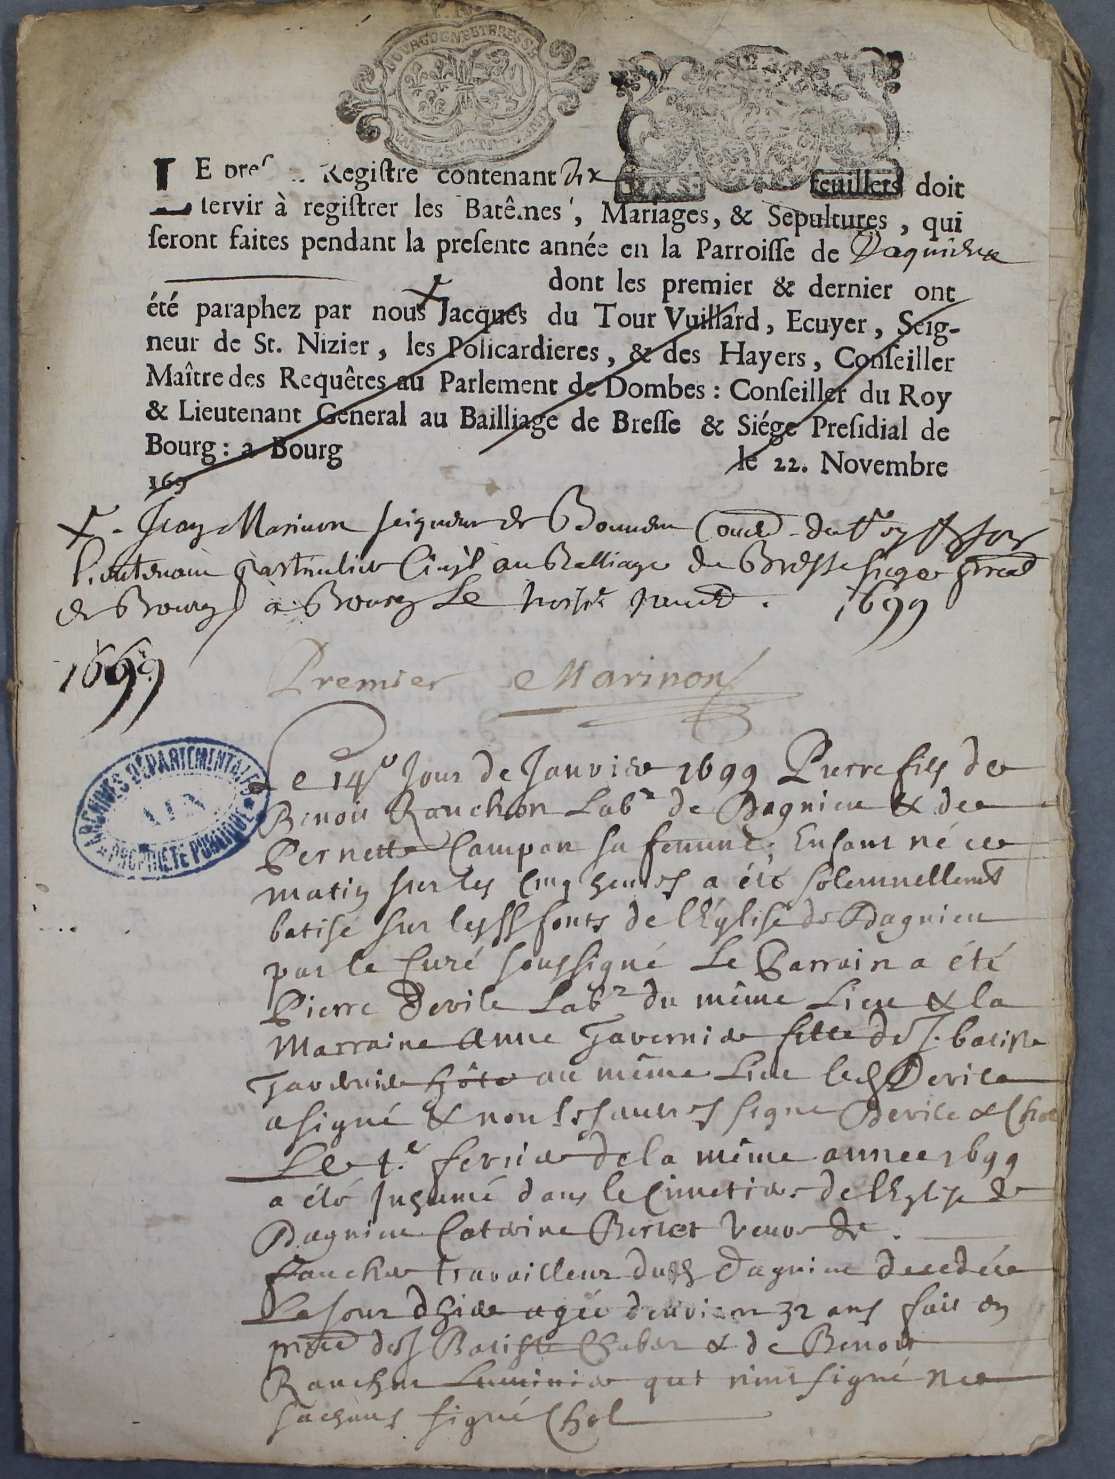 LE pres Registre contenant dix feuillets doit
servir à registrer les Batêmes, Mariages, & Sepultures, qui
seront faites pendant la presente année en la Parroisse de Dagnieu
dont les premier & dernier ont
été paraphez par nous Jacques du Tour Vuillard, Ecuyer, Seig-
neur de St. Nizier, les Policardieres, & des Hayers, Conseiller
Maître des Requêtes au Parlement de Dombes: Conseiller du Roy
& Lieutenant General au Bailliage de Bresse & Siége Presidial de
Bourg: a Bourg le 22. Novembre
169
Jean Marinon seigneur de
Lieutenant particulier Civil au Balliage de Bresse siege
de Bourg à Bourg Le 1699
1699
Premier Marinon
ARCHIVES DÉPARTEMENTALES
AIN
PROPRIÉTÉ PUBLIQUE
Le 14e Jour de Janvier 1699 Pierre fils de
Benoit Ranchon Labr de Dagnieu & de
Pernette Campan sa femme. Enfant né ce
matin sur les cinq heures a été solemnellemt
batisé sur les fonts de l'Eglise de Dagnieu
par le Curé soussigné Le Parrain a été
Pierre Devile Labr du même Lieu & la
Marraine Anne Tavernier fille de J. batiste
Tavernier hôte au même Lieu led Devile
a signé & non les autres signe Devile & Chol
Le 1.e fevrier de la même annee 1699
a été Inhumé dans le Cimetier de l'Eglise de
Dagnieu Catherine Berlet veuve de
Fauche travailleur dud Dagnieu decedée
Le Jour d'hier agée d'environ 32 ans fait en
pnce de J Batiste Chaber & de Benoit
Ranchon qui n'ont signé ne
sachans signé Chol